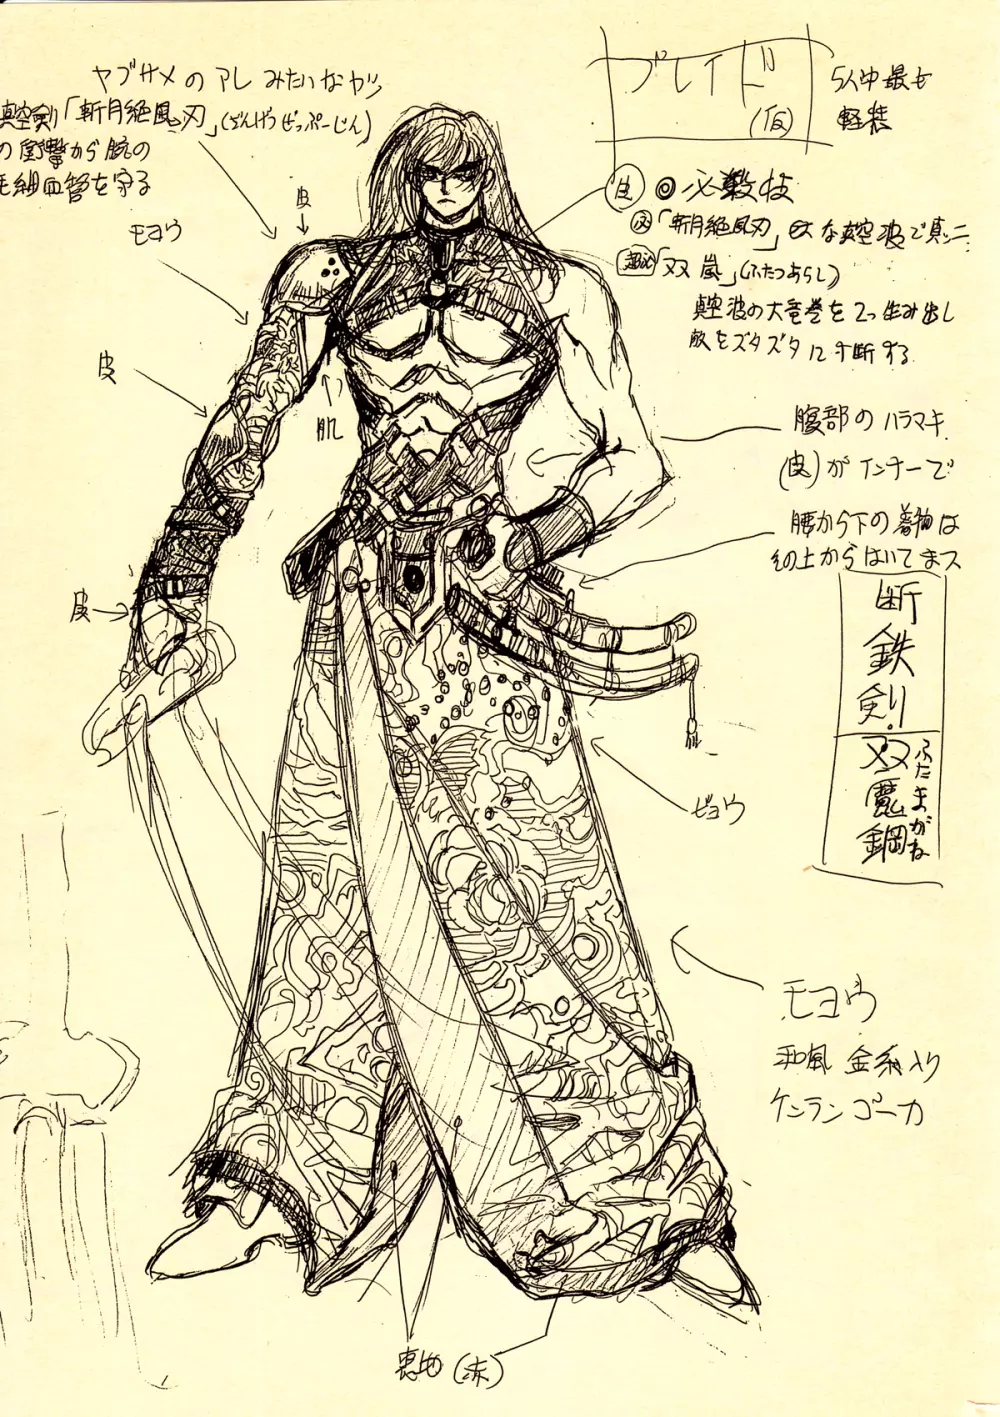 ヤブサメのアレみたいなヤツ
真空剣「斬月絶風刃」(ざんげつぜっぷーじん)
の衝撃から腕の
毛細血管を守る
皮
モヨウ
皮
肌
皮
ブレイド
(仮)
5人中最も
軽装
皮
◎必殺技
必「斬月絶風刃」巨大な真空波で真ッ二
超必「双嵐」(ふたつあらし)
真空波の大竜巻を2つ生み出し
敵をズタズタに寸断する
腹部のハラマキ
(皮)がインナーで
腰から下の着物は
その上からはいてまス
断鉄剣
双魔鋼
ふたまがね
ビョウ
モヨウ
和風 金糸入り
ケンランゴーカ
裏地(赤)